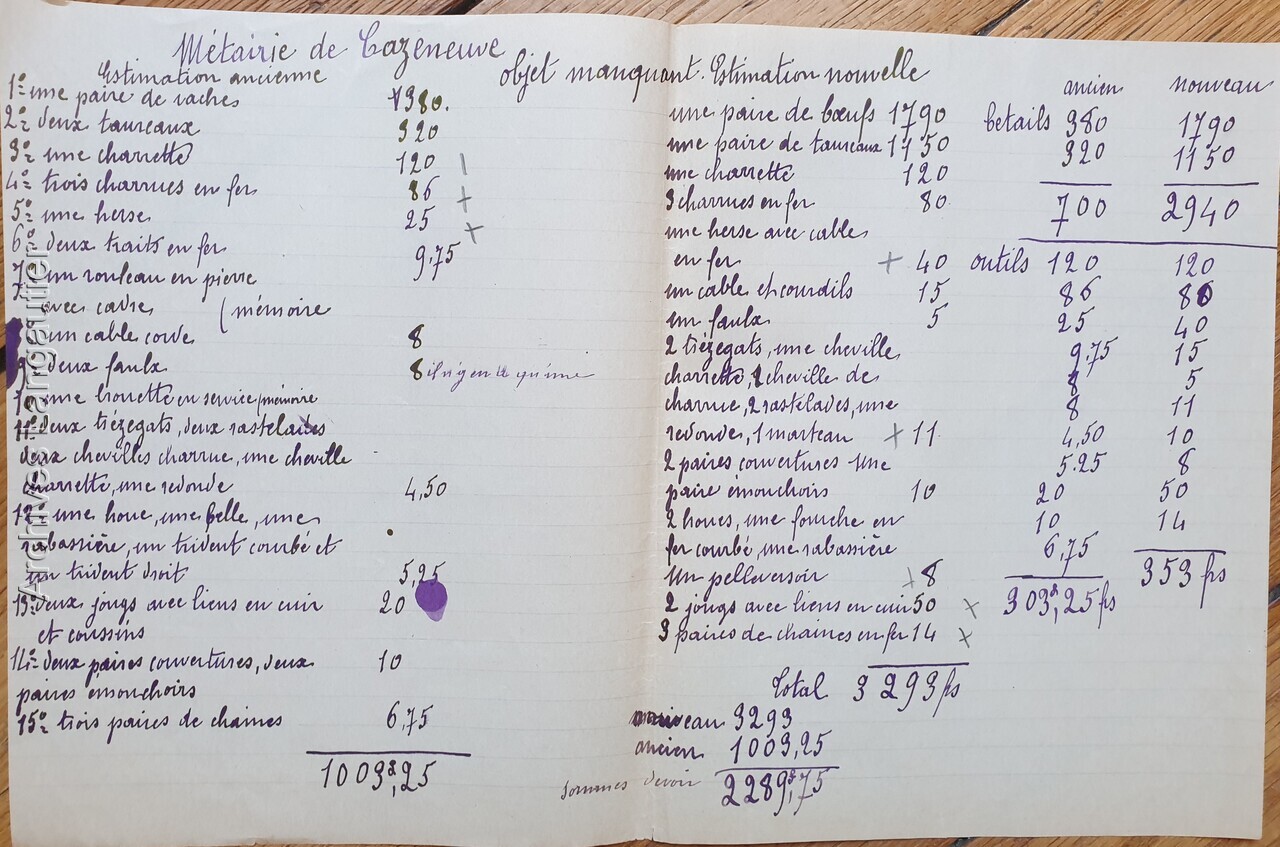 Métairie de Cazeneuve
Estimation ancienne
1º une paire de vaches 380.
2º deux taureaux 320
3º une charrette 120
4º trois charrues en fer 86 +
5º une herse 25 +
6º deux traits en fer 9,75
7º un rouleau en pierre
avec cadre (mémoire
un cable corde 8
9 deux faulx 8
une brouette en service/mémoire
11º deux trézegats, deux rastelades
deux chevilles charrue, une cheville
charrette, une redonde 4,50
12º une houe, une pelle, une
rabassière, un trident courbé et
un trident droit 5,25
13º deux jougs avec liens en cuir 20
et coussins
14º deux paires couvertures, deux 10
paires émouchoirs
15º trois paires de chaines 6,75
1003,25
objet manquant. Estimation nouvelle
une paire de bœufs 1790
une paire de taureaux 1150
une charrette 120
3 charrues en fer 80
une herse avec cable
en fer + 40
un cable et courdils 15
un faulx 5
2 trézegats, une cheville
charrette, 2 cheville de
charrue, 2 rastelades, une
redonde, 1 marteau + 11
2 paires couvertures une
paire émouchoirs 10
2 houes, une fourche en
fer courbé, une rabassière
un pelleversoir + 8
2 jougs avec liens en cuir 50 +
3 paires de chaines en fer 14 +
Total 3293 fs
nouveau 3293
ancien 1003,25
sommes devoir 2289,75
ancien nouveau
betails 380 1790
320 1150
700 2940
outils 120 120
86 86
25 40
9.75 15
8 5
8 11
4,50 10
5.25 8
20 50
10 14
6,75
303,25 fs 353 fs
Archives Langautier